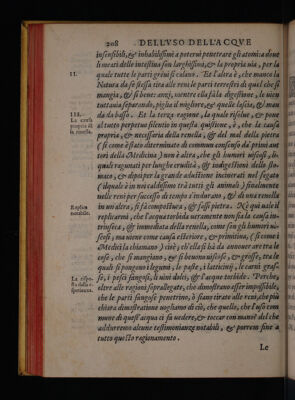 208 DELL'VSO DELL'ACQVE
insensibili, & inhabilissimi a potersi penetrare gli atomi: doue
li meati delle intestina son larghissimi, & la propria uia, per la
11. quale tutte le parti grevi si calano. Et l'altra è, che manco la
Natura da se stessa tira alle reni le parti terrestri di quel che si
mangia, & si beue: anzi, mentre ella fà la digestione, le uien
tuttauia separando, piglia il migliore, & quelle lascia, & man
112. da da basso. Et la terza ragione, la quale risolue, & pone
La causa al tutto perpetuo silentio in questa quistione, è, che la causa
propria del propria, & necessaria della renella, & del mal della pietra
la renella. (si come è stato determinato di commun consenso dà primi aut
tori della Medicina) non è altra, che gli humori uiscosi, li
quali ragunati per lunghe crudità, & indigestioni dello sto-
maco, & dopoi per la grande adustione incinerati nel fegato
(il quale è in noi caldissimo trà tutti gli animali) finalmente
nelle reni per successo di tempo s'indurano, & di una renella
in un'altra, si fà compositura, & sassi pietra. Nè qui uale il
Replica replicarmi, che l'acqua torbida ueramente non sia la causa in-
notabile. trinseca, & immediata della renella, come son gli humori ui-
scosi, ma uiene come causa esteriore, & primitiua, (si come i
Medici la chiamano) cioè, ch'ella si hà da annouerare tra le
cose, che si mangiano, & si beuono uiscose, & grosse, tra le
quali si pongono i legumi, le paste, i latticinij, le carni gras-
La rispo- se, i pesci fangosi, li uini dolci, & l'acque torbide. Perche,
sta della e- oltre alle ragioni soprallegate, che dimostrano esser impossibile,
sperienza. che le parti fangose penetrino, ò siano tirate alle reni, che più
chiara dimostratione uogliamo di ciò, che quello, che l'uso com
mune di quest'acqua ci fà uedere, & toccar con mano? del che
addurremo alcune testimonianze notabili, & porremo fine à
tutto questo ragionamento.
Le